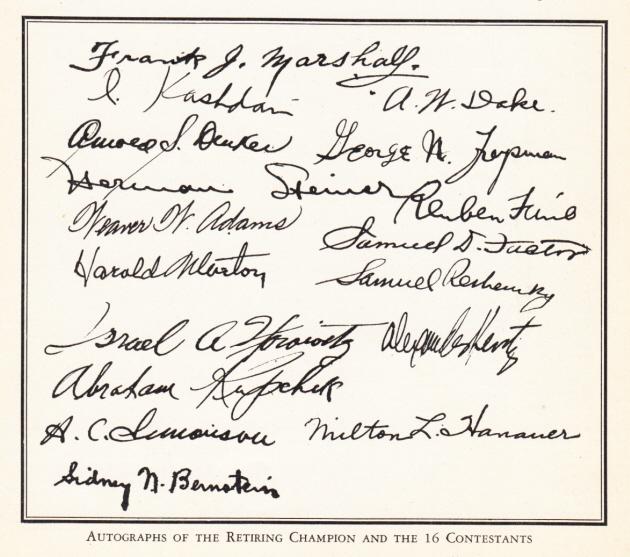 Frank J. Marshall.
I. Kashdan
A. W. Dake.
Arnold S. Denker
George N. Treysman
Herman Steiner
Reuben Fine
Weaver W. Adams
Samuel D. Factor
Harold Morton
Samuel Reshevsky
Israel A Horowitz
Alexander Kevitz
Abraham Kupchik
A. C. Simonson
Milton L. Hanauer
Sidney N. Bernstein
AUTOGRAPHS OF THE RETIRING CHAMPION AND THE 16 CONTESTANTS